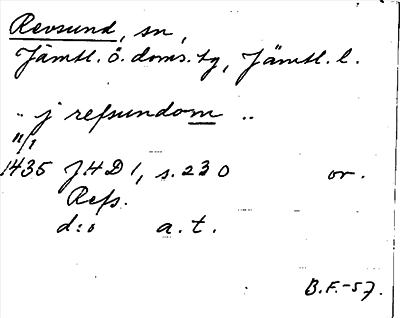 Revsund, sn,
Jämtl. ö. doms. tg, Jämtl. l.
.. j refsundom ..
11/1
1435 JHD 1, s. 230 or.
Refs.
d:o a. t.
B.F.-57.